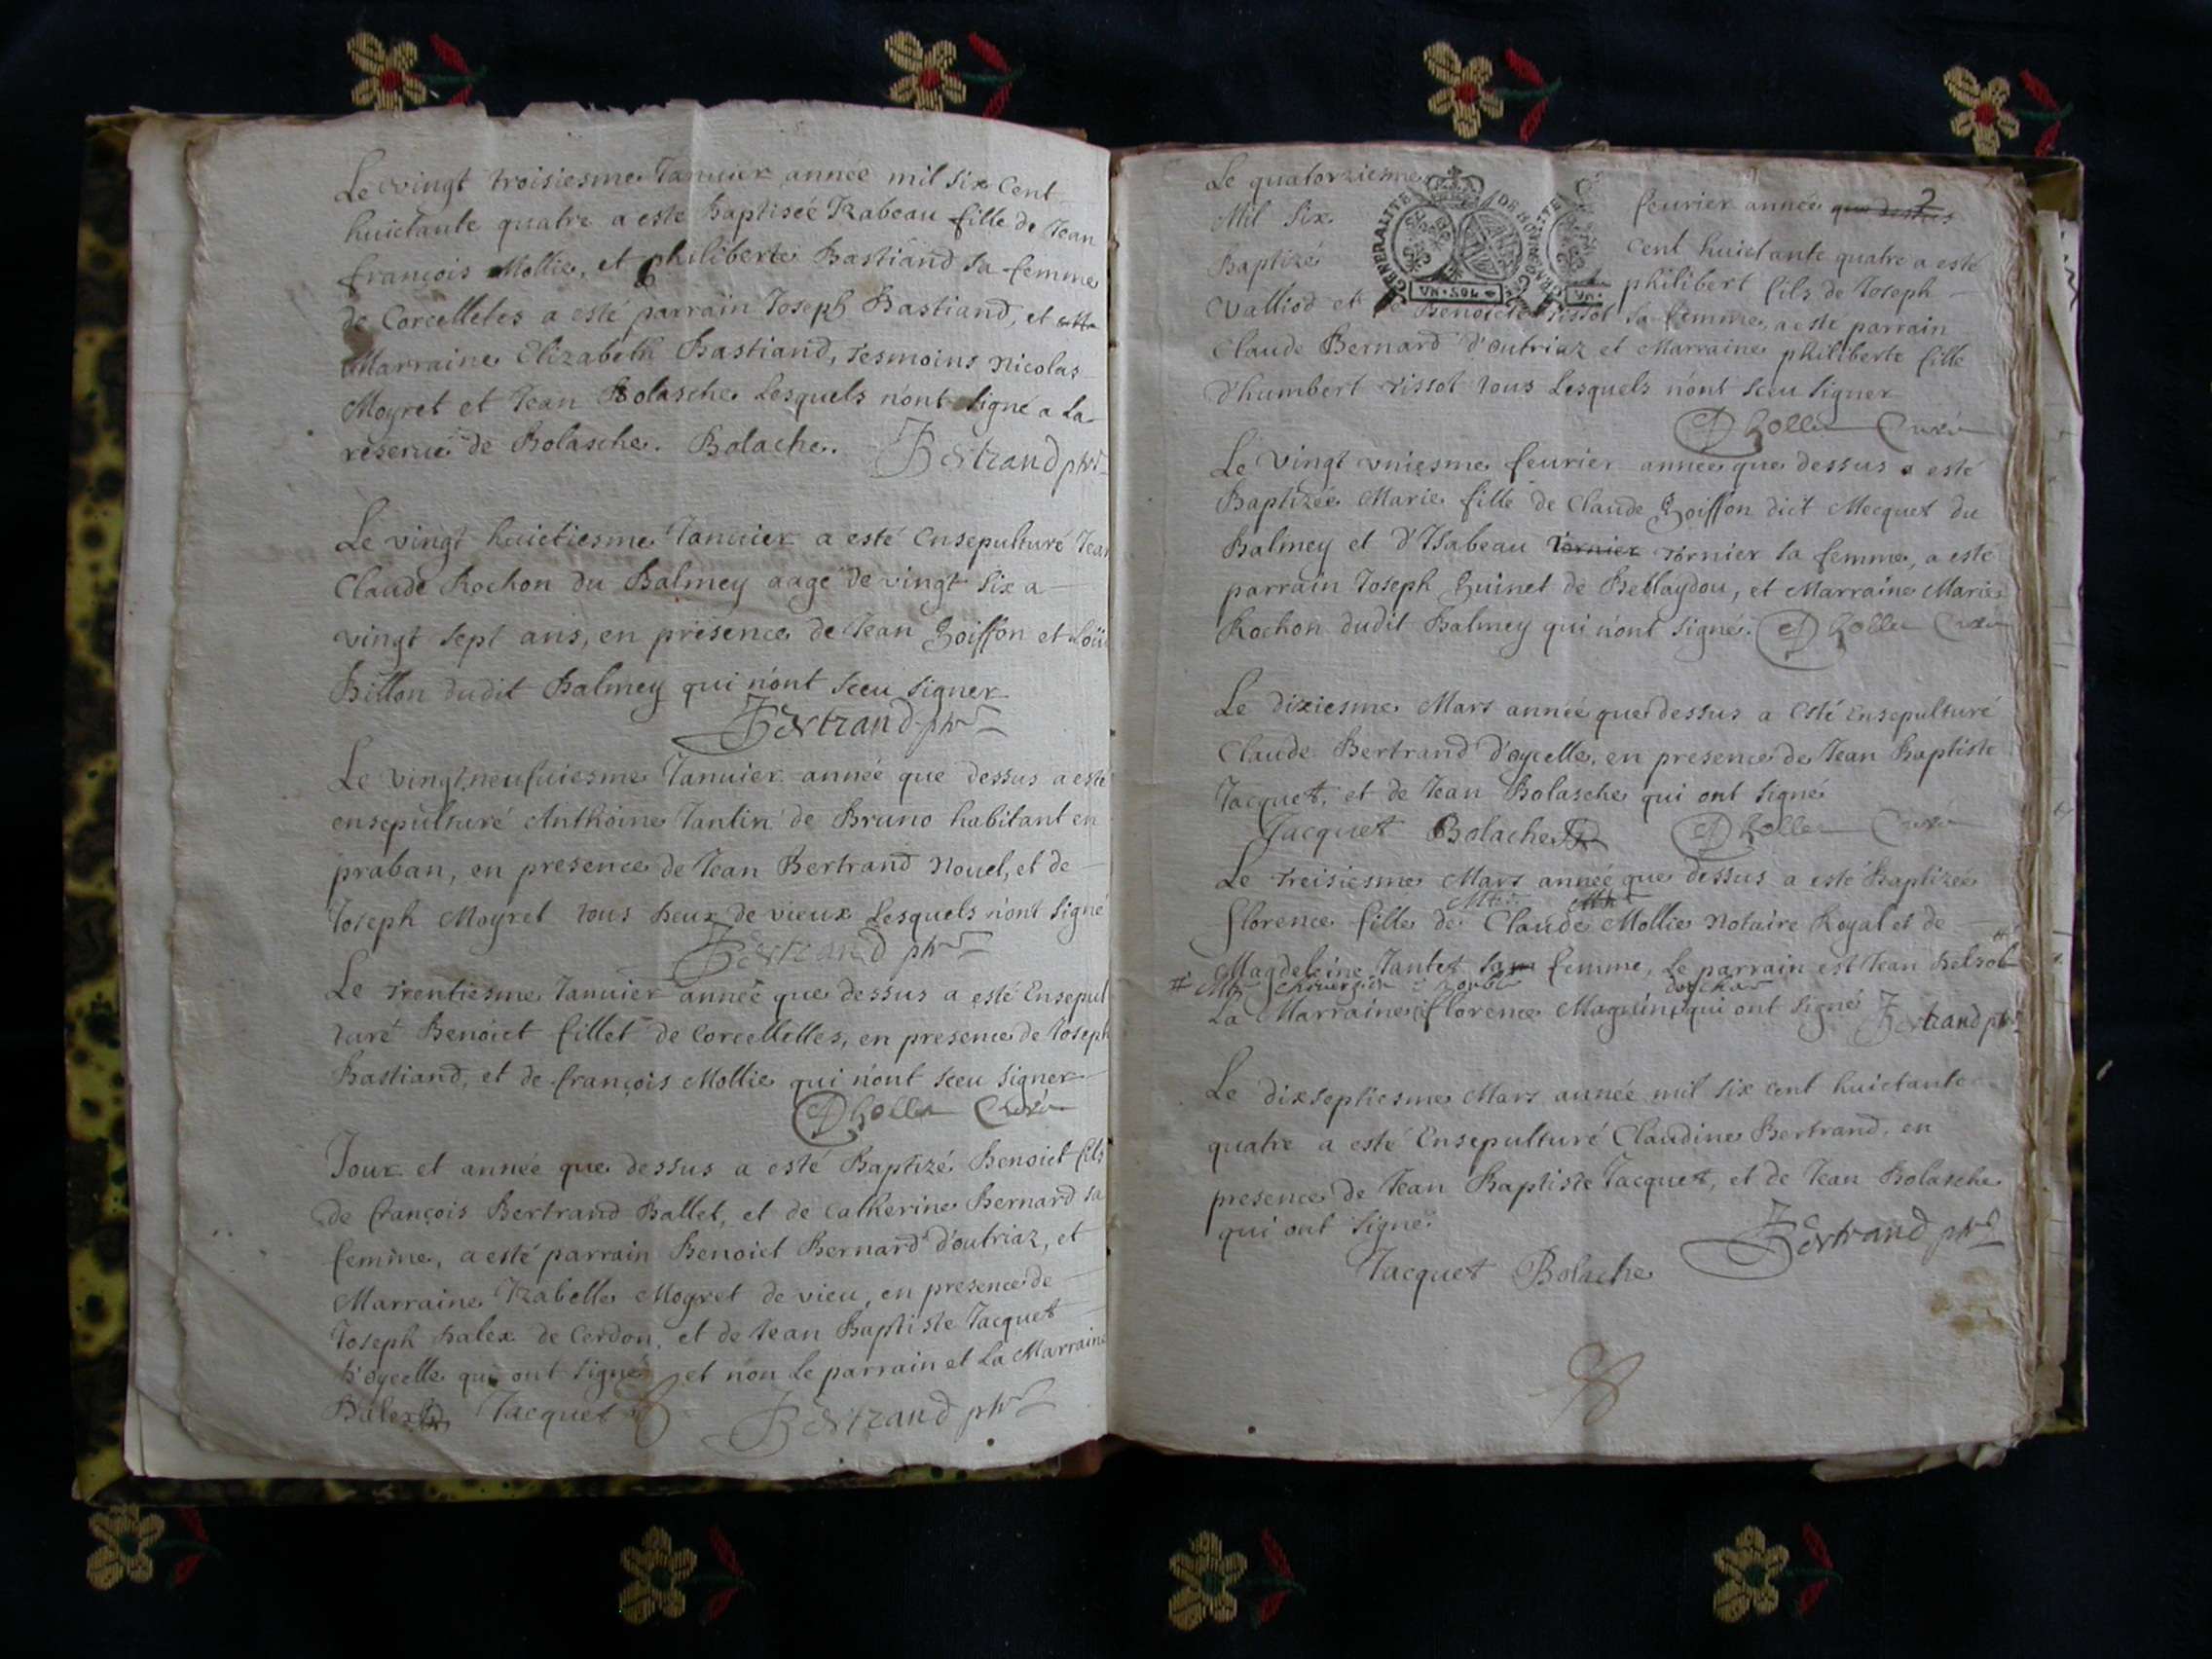 Le vingt troisiesme Januier année mil six cent
huictante quatre a esté Baptisée Izabeau fille de Jean
françois Mollie, et philiberte Bastiand sa femme
de Corcelletes a esté parrain Joseph Bastiand, et
Marraine Elizabeth Bastiand, Tesmoins Nicolas
Moyret et Jean Bolasche Lesquels n'ont signé a La
reserue de Bolasche. Bolache. Bertrand pbr
Le vingt huictiesme Januier a esté Ensepulturé Jean
Claude Rochon du Balmey aagé de vingt six a
vingt sept ans, en présence de Jean Goiffon et Loüi
Billon dudit Balmey qui n'ont sceu signer
Bertrand pbr
Le vingt neufuiesme Januier année que dessus a esté
ensepulturé Anthoine Tantin de Bruno habitant en
praban, en presence de Jean Bertrand Nouel, et de
Joseph Moyret tous deux de vieux Lesquels n'ont signé
Bertrand pbr
Le Trentiesme Januier année que dessus a esté Ensepul
turé Benoict fillet de Corcelletes, en presence de Joseph
Bastiand, et de françois Mollie qui n'ont sceu signer
Curé
Jour et année que dessus a esté Baptizé Benoict fils
de françois Bertrand Ballet, et de Catherine Bernard sa
femme, a esté parrain Benoict Bernard d'outriaz, et
Marraine Izabelle Moyret de vieu, en presence de
Joseph Balex de Cerdon, et de Jean Baptiste Jacquet
d'oycelle qui ont signé et non Le parrain et La Marraine
Balex Jacquet Bertrand pbr
2
Le quatorziesme feurier année que dessus
Mil six cent huictante quatre a esté
Baptizé philibert fils de Joseph
Valliod et de Benoicte Tissot sa femme, a esté parrain
Claude Bernard d'outriaz et Marraine philiberte fille
d'humbert Tissot tous Lesquels n'ont sceu signer
GENERALITE DE BOURGOGNE
VN·SOL
Curé
Le vingt vniesme feurier année que dessus a esté
Baptizée Marie fille de Claude Goiffon dict Mecquet du
Balmey et d'Isabeau Tornier Tornier sa femme, a esté
parrain Joseph Guinet de Bellaydou, et Marraine Marie
Rochon dudit Balmey qui n'ont signé. Curé
Le dixiesme Mars année que dessus a esté Ensepulturé
Claude Bertrand d'oycelle, en presence de Jean Baptiste
Jacquet, et de Jean Bolasche qui ont signé
Jacquet Bolache Curé
Le Treisiesme Mars année que dessus a esté Baptizée
florence fille de Claude Mollie Notaire Royal et de
Magdeleine Tantet sa femme, Le parrain est Jean
La Marraine florence Magnin, qui ont signé Bertrand pbr
Le dixseptiesme Mars année mil six cent huictante
quatre a esté Ensepulturé Claudine Bertrand, en
presence de Jean Baptiste Jacquet, et de Jean Bolasche
qui ont signé
Jacquet Bolache Bertrand pbr